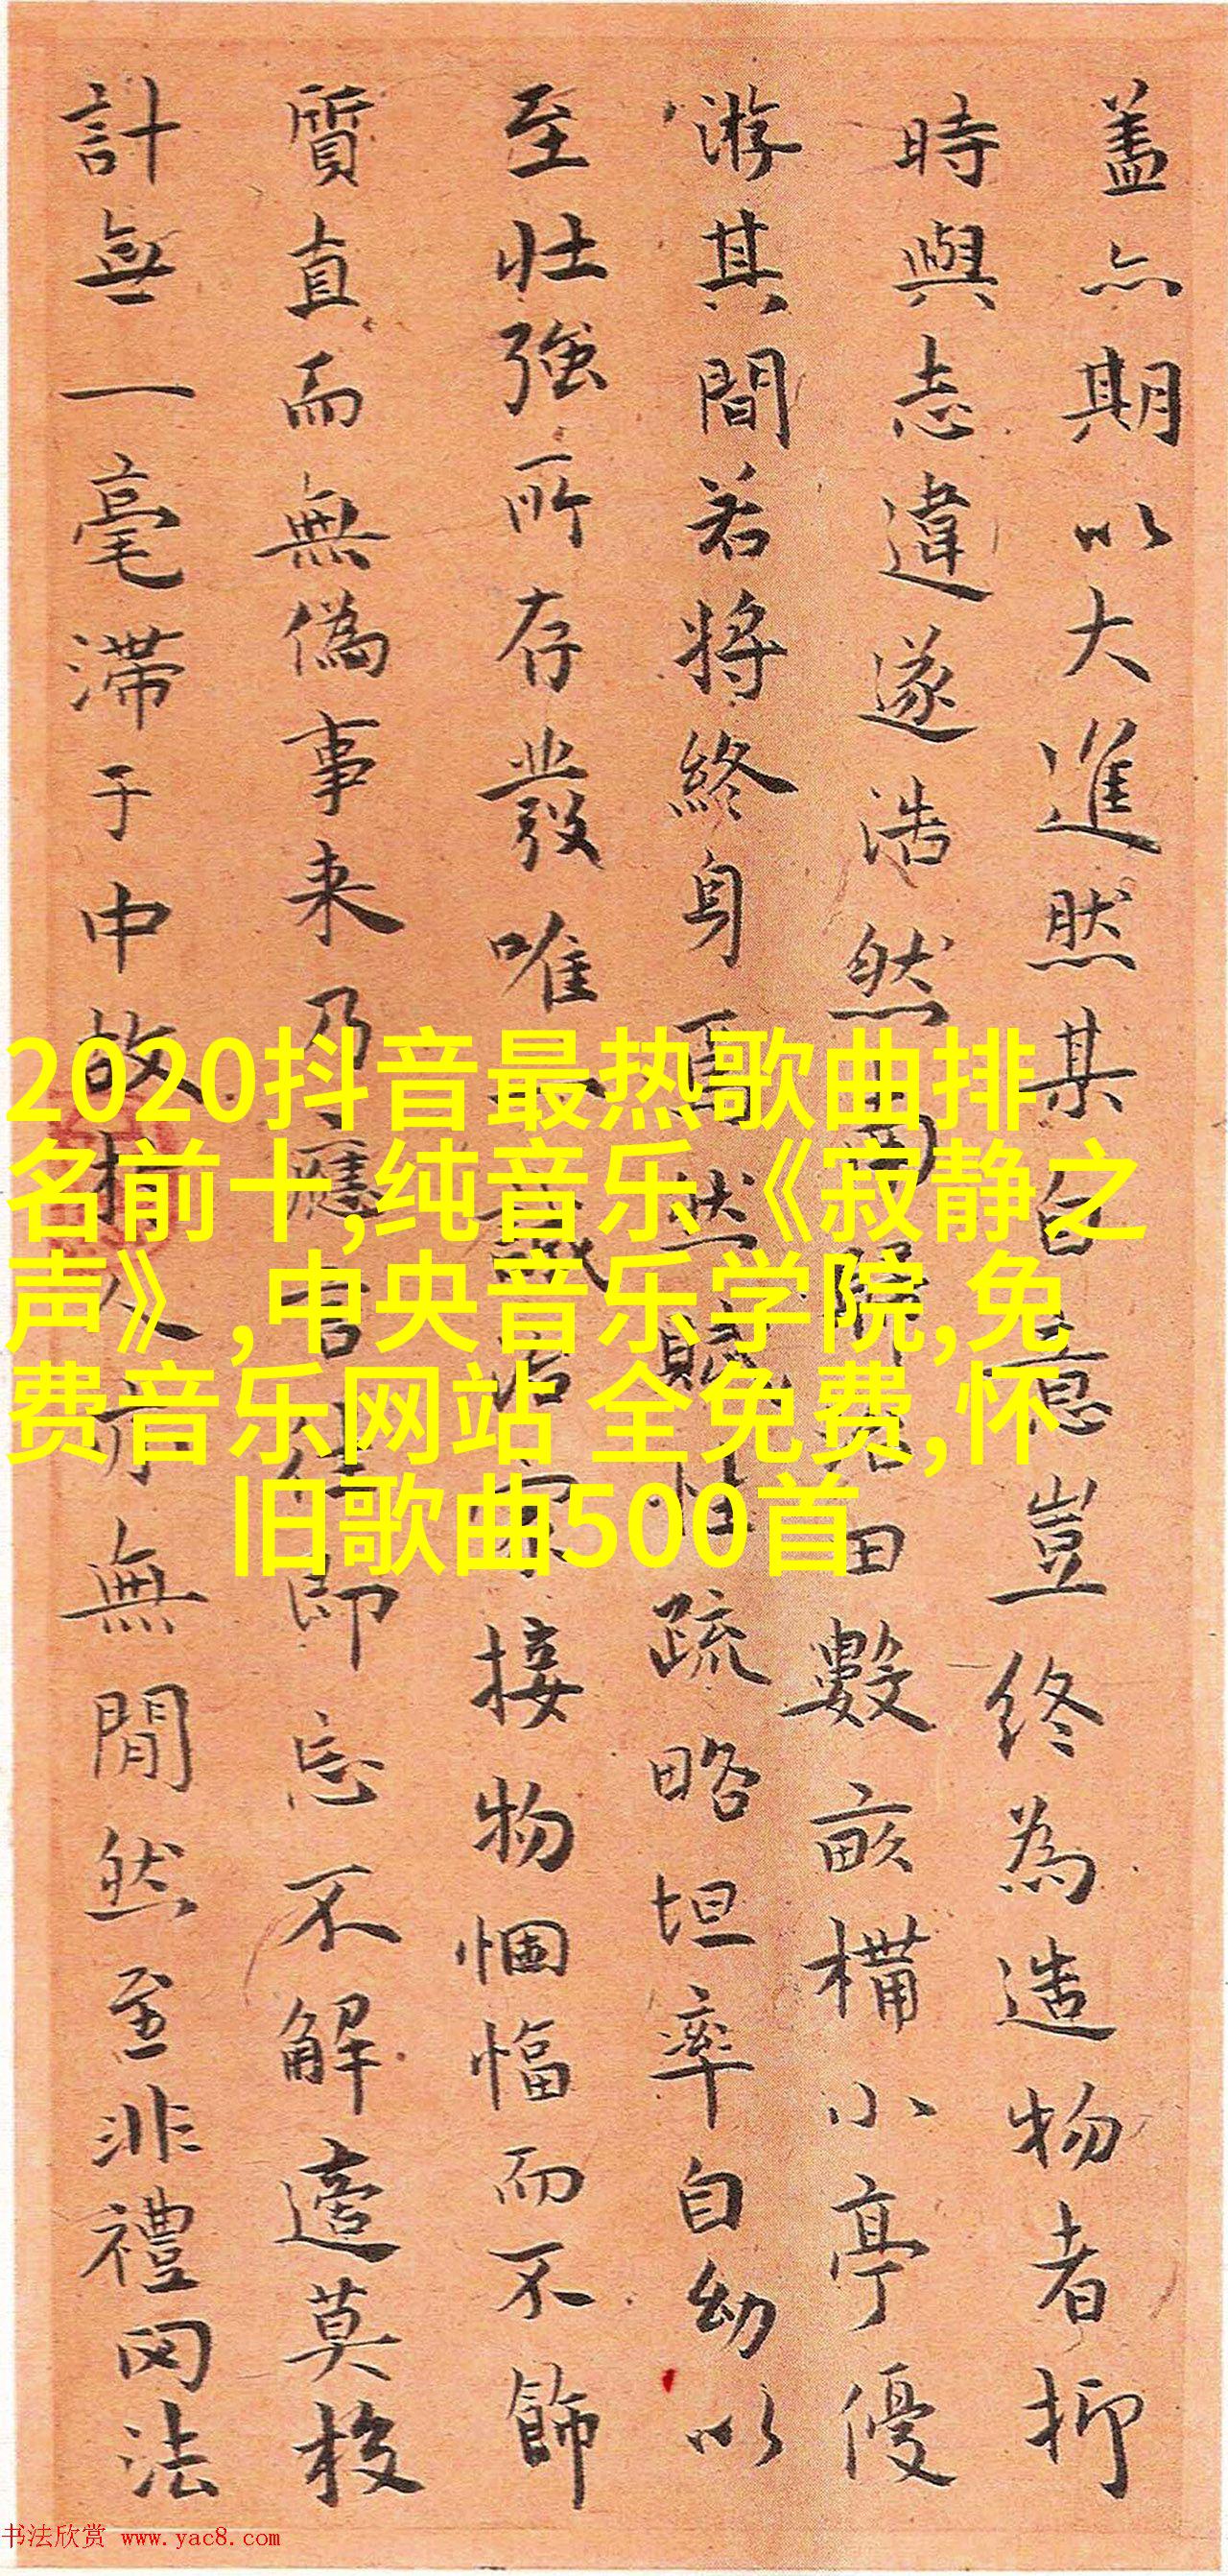 盖亦期以大進然其自意豈終為造物者抑
時與志違遂浩然歸田數畝構小亭優
游其間若將終身焉然賦性疏略坦率自幼以
至壯強所存發唯一誠治家接物悃愊而不飾
質直而無偽事来乃應言往即忘不解莫校
計無一毫滞于中故於人亦無間然至非禮罔法
2020抖音最热歌曲排
名前十,纯音乐《寂静之
声》,中央音乐学院,免
费音乐网站 全免费,怀
旧歌曲500首
书法欣赏 www.yac8.com